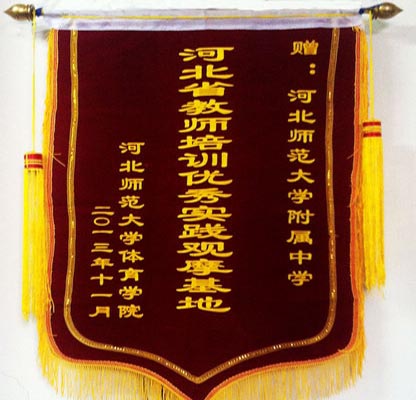 赠：河北师范大学附属中学
河北省教师培训优秀实践观摩基地
河北师范大学体育学院
二〇一三年十一月